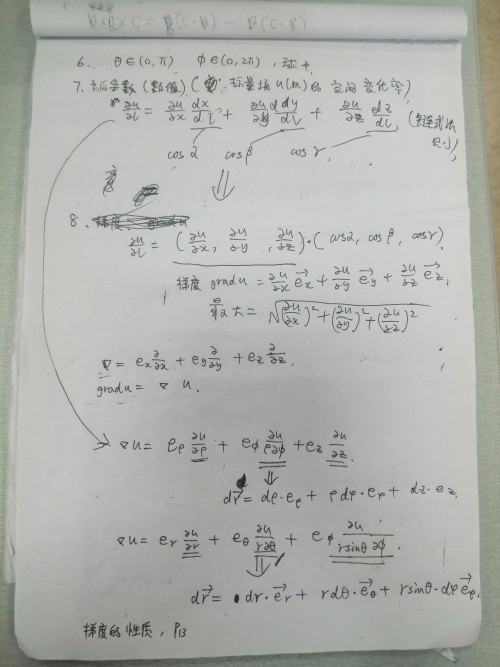 A×B×C = B(C·A) - A(C·B)
6. θ∈(0,π) φ∈(0,2π), 球
7. 方向导数(数值)(标量场u(m)的空间变化率)
∂u/∂l = ∂u/∂x dx/dl + ∂u/∂y dy/dl + ∂u/∂z dz/dl, (链式法则)
cosα cosβ cosγ
8.
∂u/∂l = (∂u/∂x, ∂u/∂y, ∂u/∂z)·(cosα, cosβ, cosγ)
梯度 grad u = ∂u/∂x e⃗x + ∂u/∂y e⃗y + ∂u/∂z e⃗z,
最大 = √((∂u/∂x)² + (∂u/∂y)² + (∂u/∂z)²)
∇ = ex ∂/∂x + ey ∂/∂y + ez ∂/∂z.
grad u = ∇ u.
∇u = eρ ∂u/∂ρ + eφ ∂u/ρ∂φ + ez ∂u/∂z.
dr⃗ = dρ·eρ + ρdφ·eφ + dz·ez.
∇u = er ∂u/∂r + eθ ∂u/r∂θ + eφ ∂u/rsinθ∂φ.
dr⃗ = dr·e⃗r + rdθ·e⃗θ + rsinθ·dφe⃗φ.
梯度的性质, P13